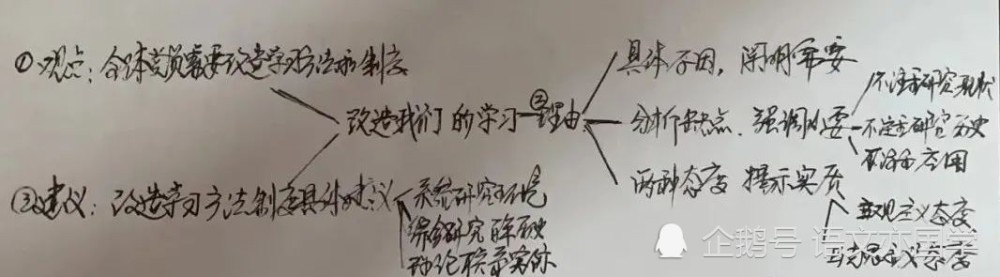 ①观点：全体党员需要改造学习方法和制度
改造我们的学习
②理由
具体原因，阐明需要
分析缺点，强调必要
不注重研究现状
不注重研究历史
不注重应用
两种态度 揭示实质
主观主义态度
马克思主义态度
③建议：改造学习方法制度具体建议
系统研究环境
综合研究历史
理论联系实际
企鹅号